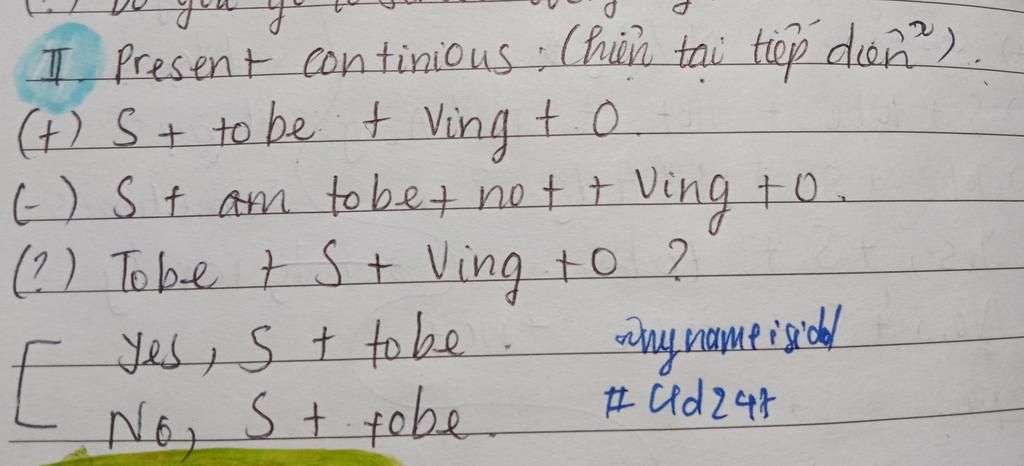 II. Present continious : (hiện tại tiếp diễn²).
(+) S + to be + Ving + O.
(-) S + am to be + not + Ving + O.
(?) To be + S + Ving + O ?
Yes, S + to be.
No, S + to be.
my name is